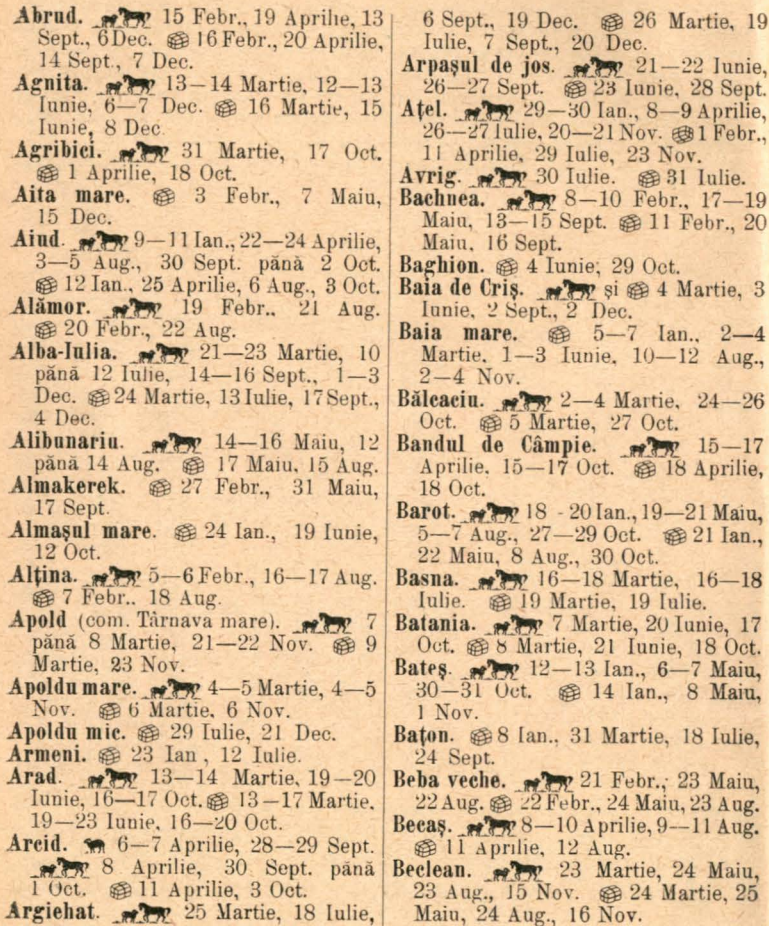 Abrud. 15 Febr., 19 Aprilie, 13
Sept., 6 Dec. 16 Febr., 20 Aprilie,
14 Sept., 7 Dec.
Agnita. 13—14 Martie, 12—13
Iunie, 6—7 Dec. 16 Martie, 15
Iunie, 8 Dec.
Agribici. 31 Martie, 17 Oct.
1 Aprilie, 18 Oct.
Aita mare. 3 Febr., 7 Maiu,
15 Dec.
Aiud. 9—11 Ian., 22—24 Aprilie,
3—5 Aug., 30 Sept. pănă 2 Oct.
12 Ian., 25 Aprilie, 6 Aug., 3 Oct.
Alămor. 19 Febr.. 21 Aug.
20 Febr., 22 Aug.
Alba-Iulia. 21—23 Martie, 10
pănă 12 Iulie, 14—16 Sept., 1—3
Dec. 24 Martie, 13 Iulie, 17 Sept.,
4 Dec.
Alibunariu. 14—16 Maiu, 12
pănă 14 Aug. 17 Maiu, 15 Aug.
Almakerek. 27 Febr., 31 Maiu,
17 Sept.
Almașul mare. 24 Ian., 19 Iunie,
12 Oct.
Alțina. 5—6 Febr., 16—17 Aug.
7 Febr.. 18 Aug.
Apold (com. Târnava mare). 7
pănă 8 Martie, 21—22 Nov. 9
Martie, 23 Nov.
Apoldu mare. 4—5 Martie, 4—5
Nov. 6 Martie. 6 Nov.
Apoldu mic. 29 Iulie, 21 Dec.
Armeni. 23 Ian , 12 Iulie.
Arad. 13—14 Martie, 19—20
Iunie, 16—17 Oct. 13—17 Martie.
19—23 Iunie, 16—20 Oct.
Arcid. 6—7 Aprilie, 28—29 Sept.
8 Aprilie, 30 Sept. pănă
1 Oct. 11 Aprilie, 3 Oct.
Argiehat. 25 Martie, 18 Iulie,
6 Sept., 19 Dec. 26 Martie, 19
Iulie, 7 Sept., 20 Dec.
Arpașul de jos. 21—22 Iunie,
26—27 Sept. 23 Iunie, 28 Sept.
Ațel. 29—30 Ian., 8—9 Aprilie,
26—27 Iulie, 20—21 Nov. 1 Febr.,
11 Aprilie, 29 Iulie, 23 Nov.
Avrig. 30 Iulie. 31 Iulie.
Bachnea. 8—10 Febr., 17—19
Maiu, 13—15 Sept. 11 Febr., 20
Maiu, 16 Sept.
Baghion. 4 Iunie; 29 Oct.
Baia de Criș. și 4 Martie, 3
Iunie, 2 Sept., 2 Dec.
Baia mare. 5—7 Ian.. 2—4
Martie. 1—3 Iunie, 10—12 Aug.,
2—4 Nov.
Bălcaciu. 2—4 Martie, 24—26
Oct. 5 Martie, 27 Oct.
Bandul de Câmpie. 15—17
Aprilie, 15—17 Oct. 18 Aprilie,
18 Oct.
Barot. 18 - 20 Ian., 19—21 Maiu,
5—7 Aug., 27—29 Oct. 21 Ian.,
22 Maiu, 8 Aug., 30 Oct.
Basna. 16—18 Martie, 16—18
Iulie. 19 Martie, 19 Iulie.
Batania. 7 Martie, 20 Iunie, 17
Oct. 8 Martie, 21 Iunie, 18 Oct.
Bateș. 12—13 Ian., 6—7 Maiu,
30—31 Oct. 14 Ian., 8 Maiu,
1 Nov.
Bațon. 8 Ian., 31 Martie, 18 Iulie,
24 Sept.
Beba veche. 21 Febr., 23 Maiu,
22 Aug. 22 Febr., 24 Maiu, 23 Aug.
Becaș. 8—10 Aprilie, 9—11 Aug.
11 Aprilie, 12 Aug.
Beclean. 23 Martie, 24 Maiu,
23 Aug., 15 Nov. 24 Martie, 25
Maiu, 24 Aug., 16 Nov.